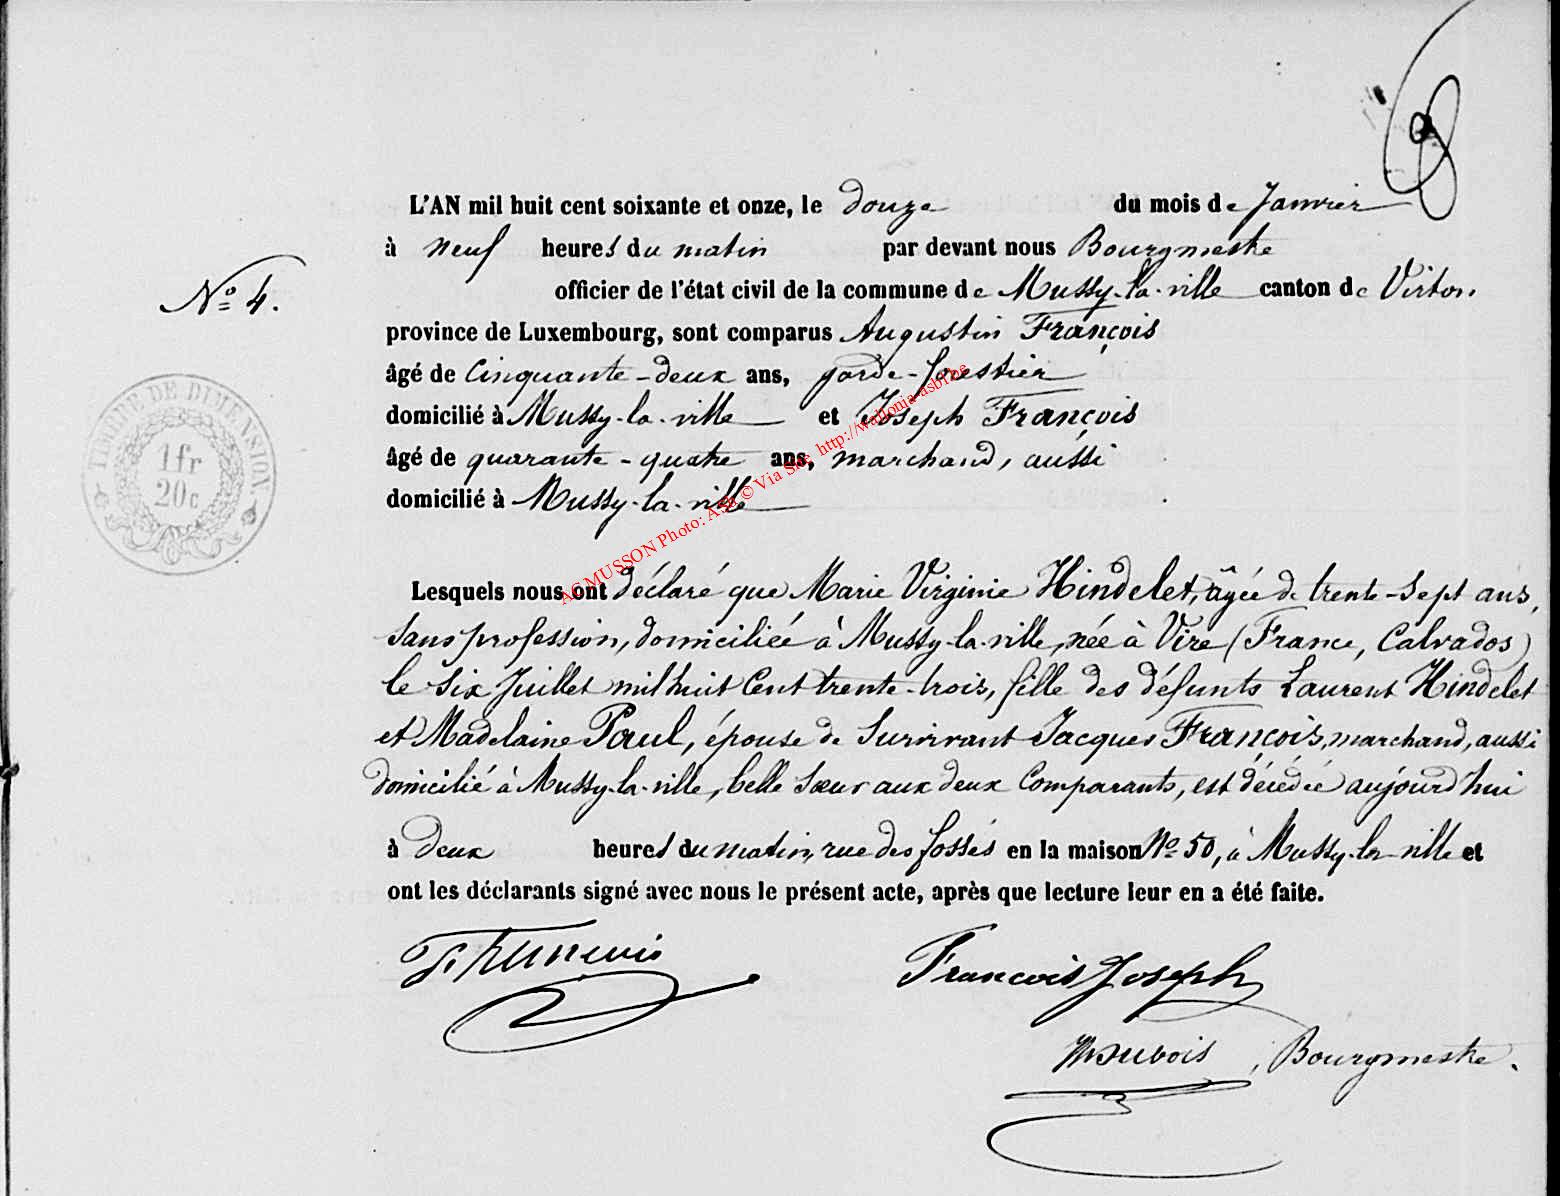 L'AN mil huit cent soixante et onze, le douze du mois de Janvier
à neuf heures du matin par devant nous Bourgmestre
N° 4.
officier de l'état civil de la commune de Mussy-la-ville canton de Virton,
province de Luxembourg, sont comparus Augustin François
âgé de cinquante-deux ans, garde-forestier
domicilié à Mussy-la-ville et Joseph François
âgé de quarante-quatre ans, marchand, aussi
domicilié à Mussy-la-ville
TIMBRE DE DIMENSION.
1 fr
20 c
AC MUSSON Photo: © Via Site http://wallonia-asbl.be
Lesquels nous ont déclaré que Marie Virginie Hindelet, âgée de trente-sept ans,
sans profession, domiciliée à Mussy-la-ville, née à Vire (France, Calvados)
le six Juillet mil huit cent trente-trois, fille des défunts Laurent Hindelet
et Madelaine Paul, épouse de survivant Jacques François, marchand, aussi
domicilié à Mussy-la-ville, belle sœur aux deux comparants, est décédée aujourd'hui
à deux heures du matin, rue des fossés en la maison N° 50, à Mussy-la-ville et
ont les déclarants signé avec nous le présent acte, après que lecture leur en a été faite.
François
François Joseph
Dubois, Bourgmestre.